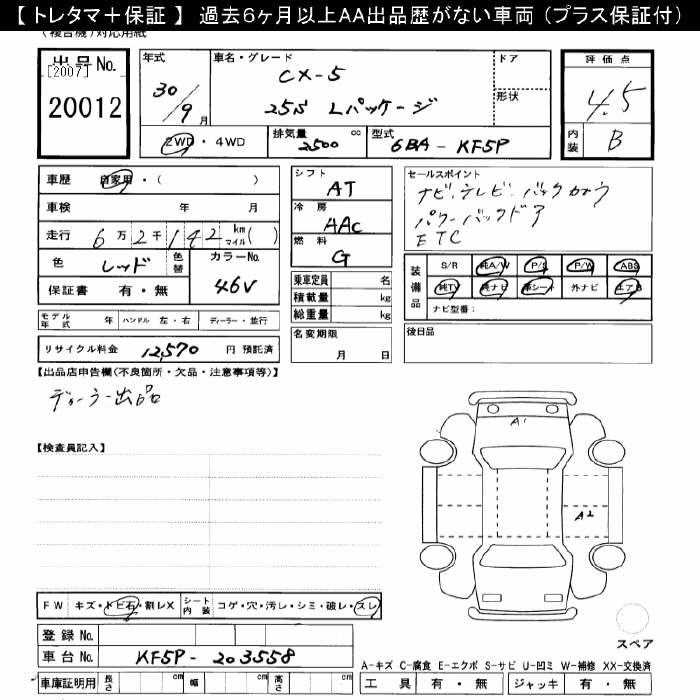 【 トレタマ＋保証 】 過去６ヶ月以上AA出品歴がない車両 （プラス保証付）
(複合機)対応用紙
出品No.
[2007]
20012
年式 30/9月
車名・グレード CX-5
25S Lパッケージ
ドア
形状
2WD・4WD
排気量 2500 cc
型式 6BA - KF5P
評価点
4.5
内装 B
車歴 自家用・( )
車検 年 月
走行 6万2千142 km マイル( )
色 レッド 色替
カラーNo. 46V
保証書 有・無
モデル年式 年 ハンドル 左・右 ディーラー・並行
リサイクル料金 12,570 円 預託済
シフト AT
冷房 AAC
燃料 G
乗車定員 名
積載量 kg
総重量 kg
名変期限
月 日
セールスポイント
ナビ.テレビ.バックカメラ
パワーバックドア
ETC
装備品
S/R 純A/W P/S P/W ABS
純TV 純ナビ 革シート 外ナビ エアB
ナビ型番：
後日品
【出品店申告欄(不良箇所・欠品・注意事項等)】
ディーラー出品
【検査員記入】
A1
A2
FW キズ・トビ石・割レX シート内装 コゲ・穴・汚レ・シミ・破レ・スレ
登録 No.
車台 No. KF5P - 203558
車庫証明用 長さ cm 幅 cm 高さ cm
スペア
A-キズ C-腐食 E-エクボ S-サビ U-凹ミ W-補修 XX-交換済
工具 有・無 ジャッキ 有・無